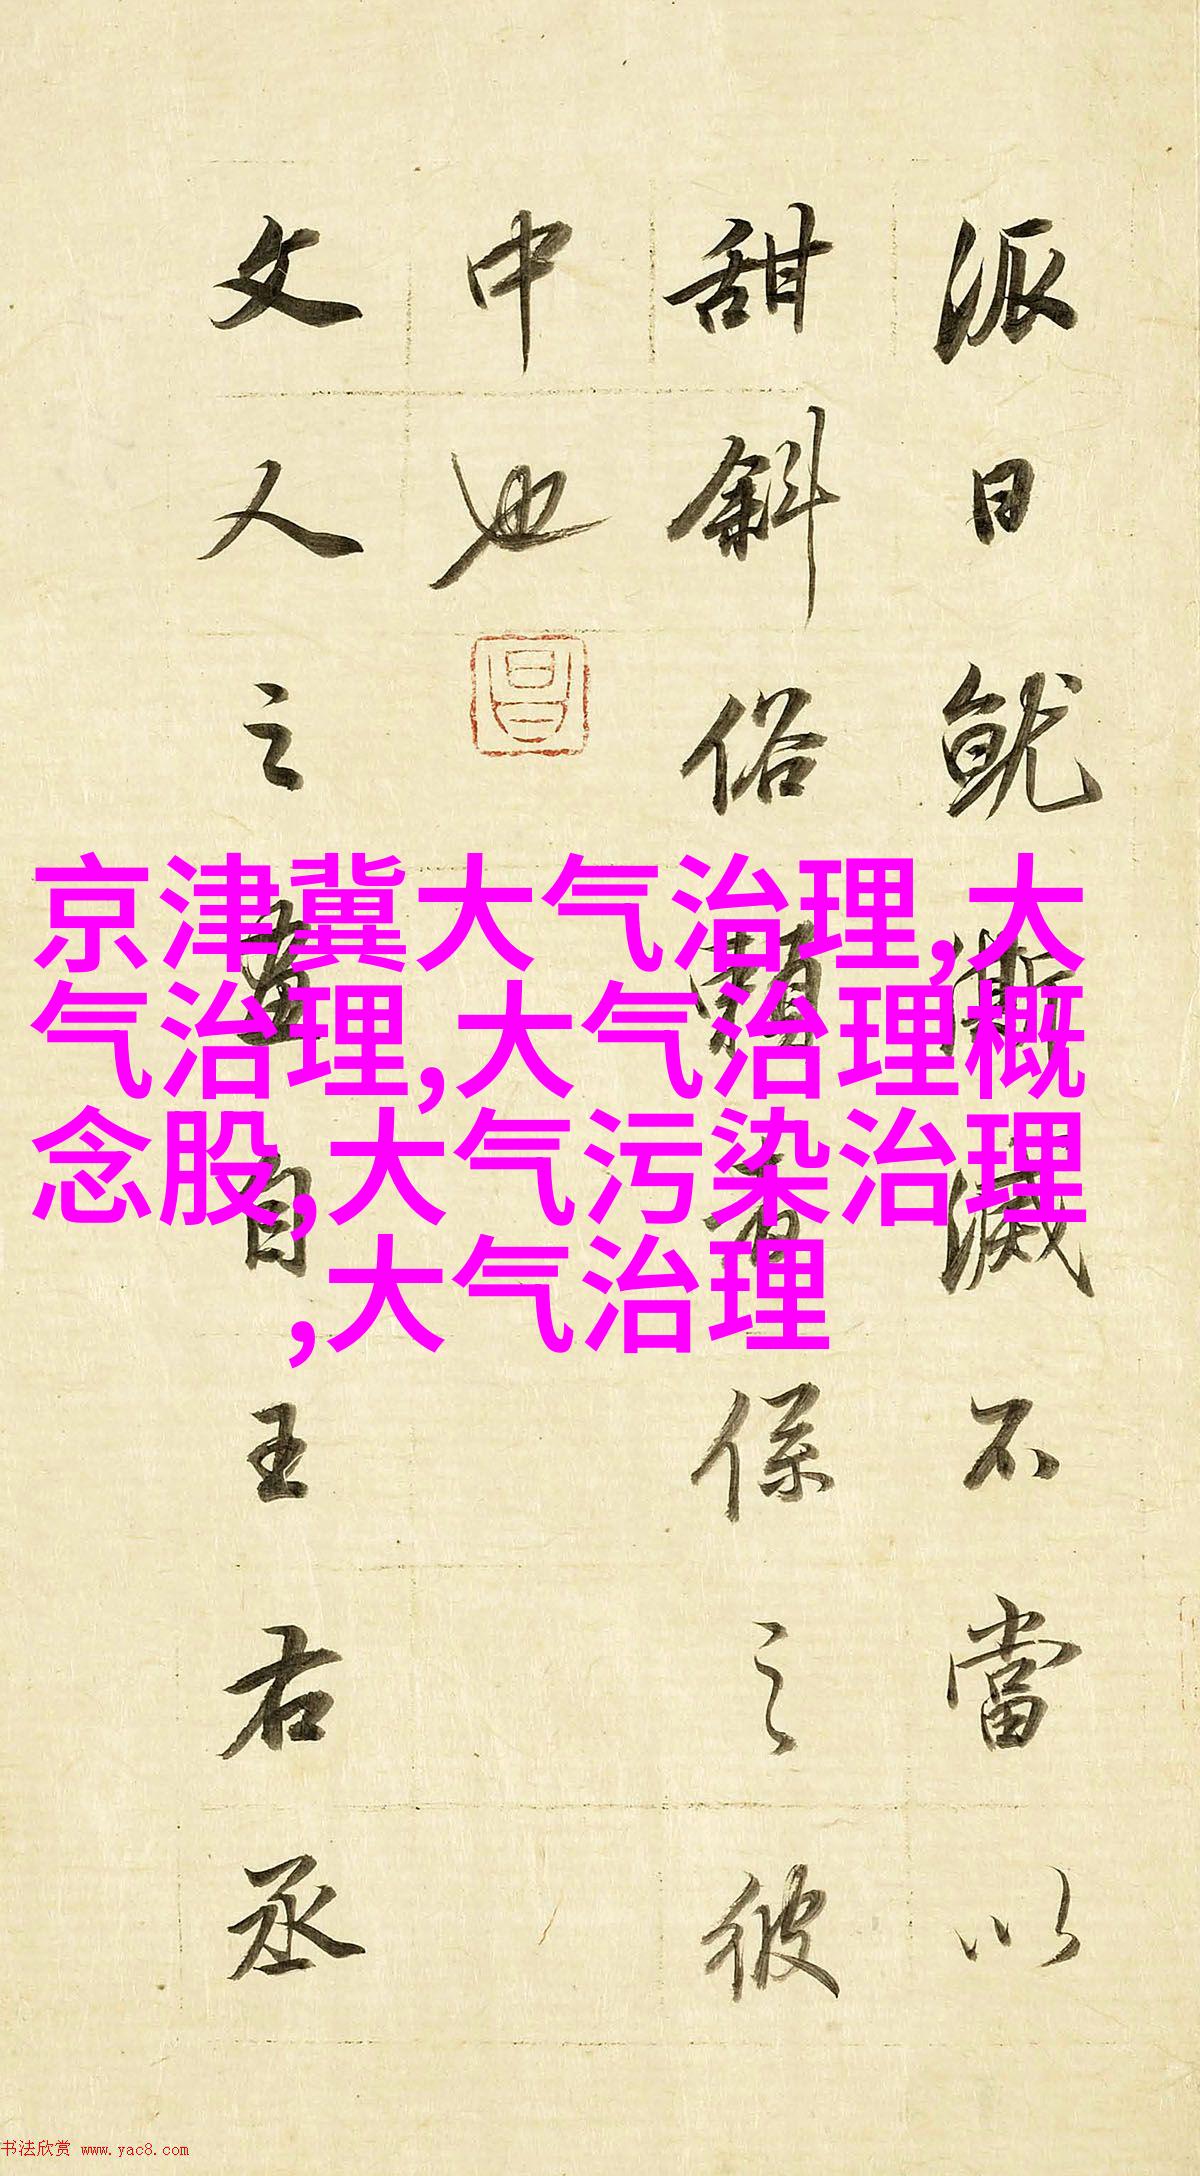 派日就漸滅不當以
甜斜俗賴者係之彼
中也
昌
文人之畫自王右丞
京津冀大气治理,大
气治理,大气治理概
念股,大气污染治理
,大气治理
书法欣赏 www.yac8.com